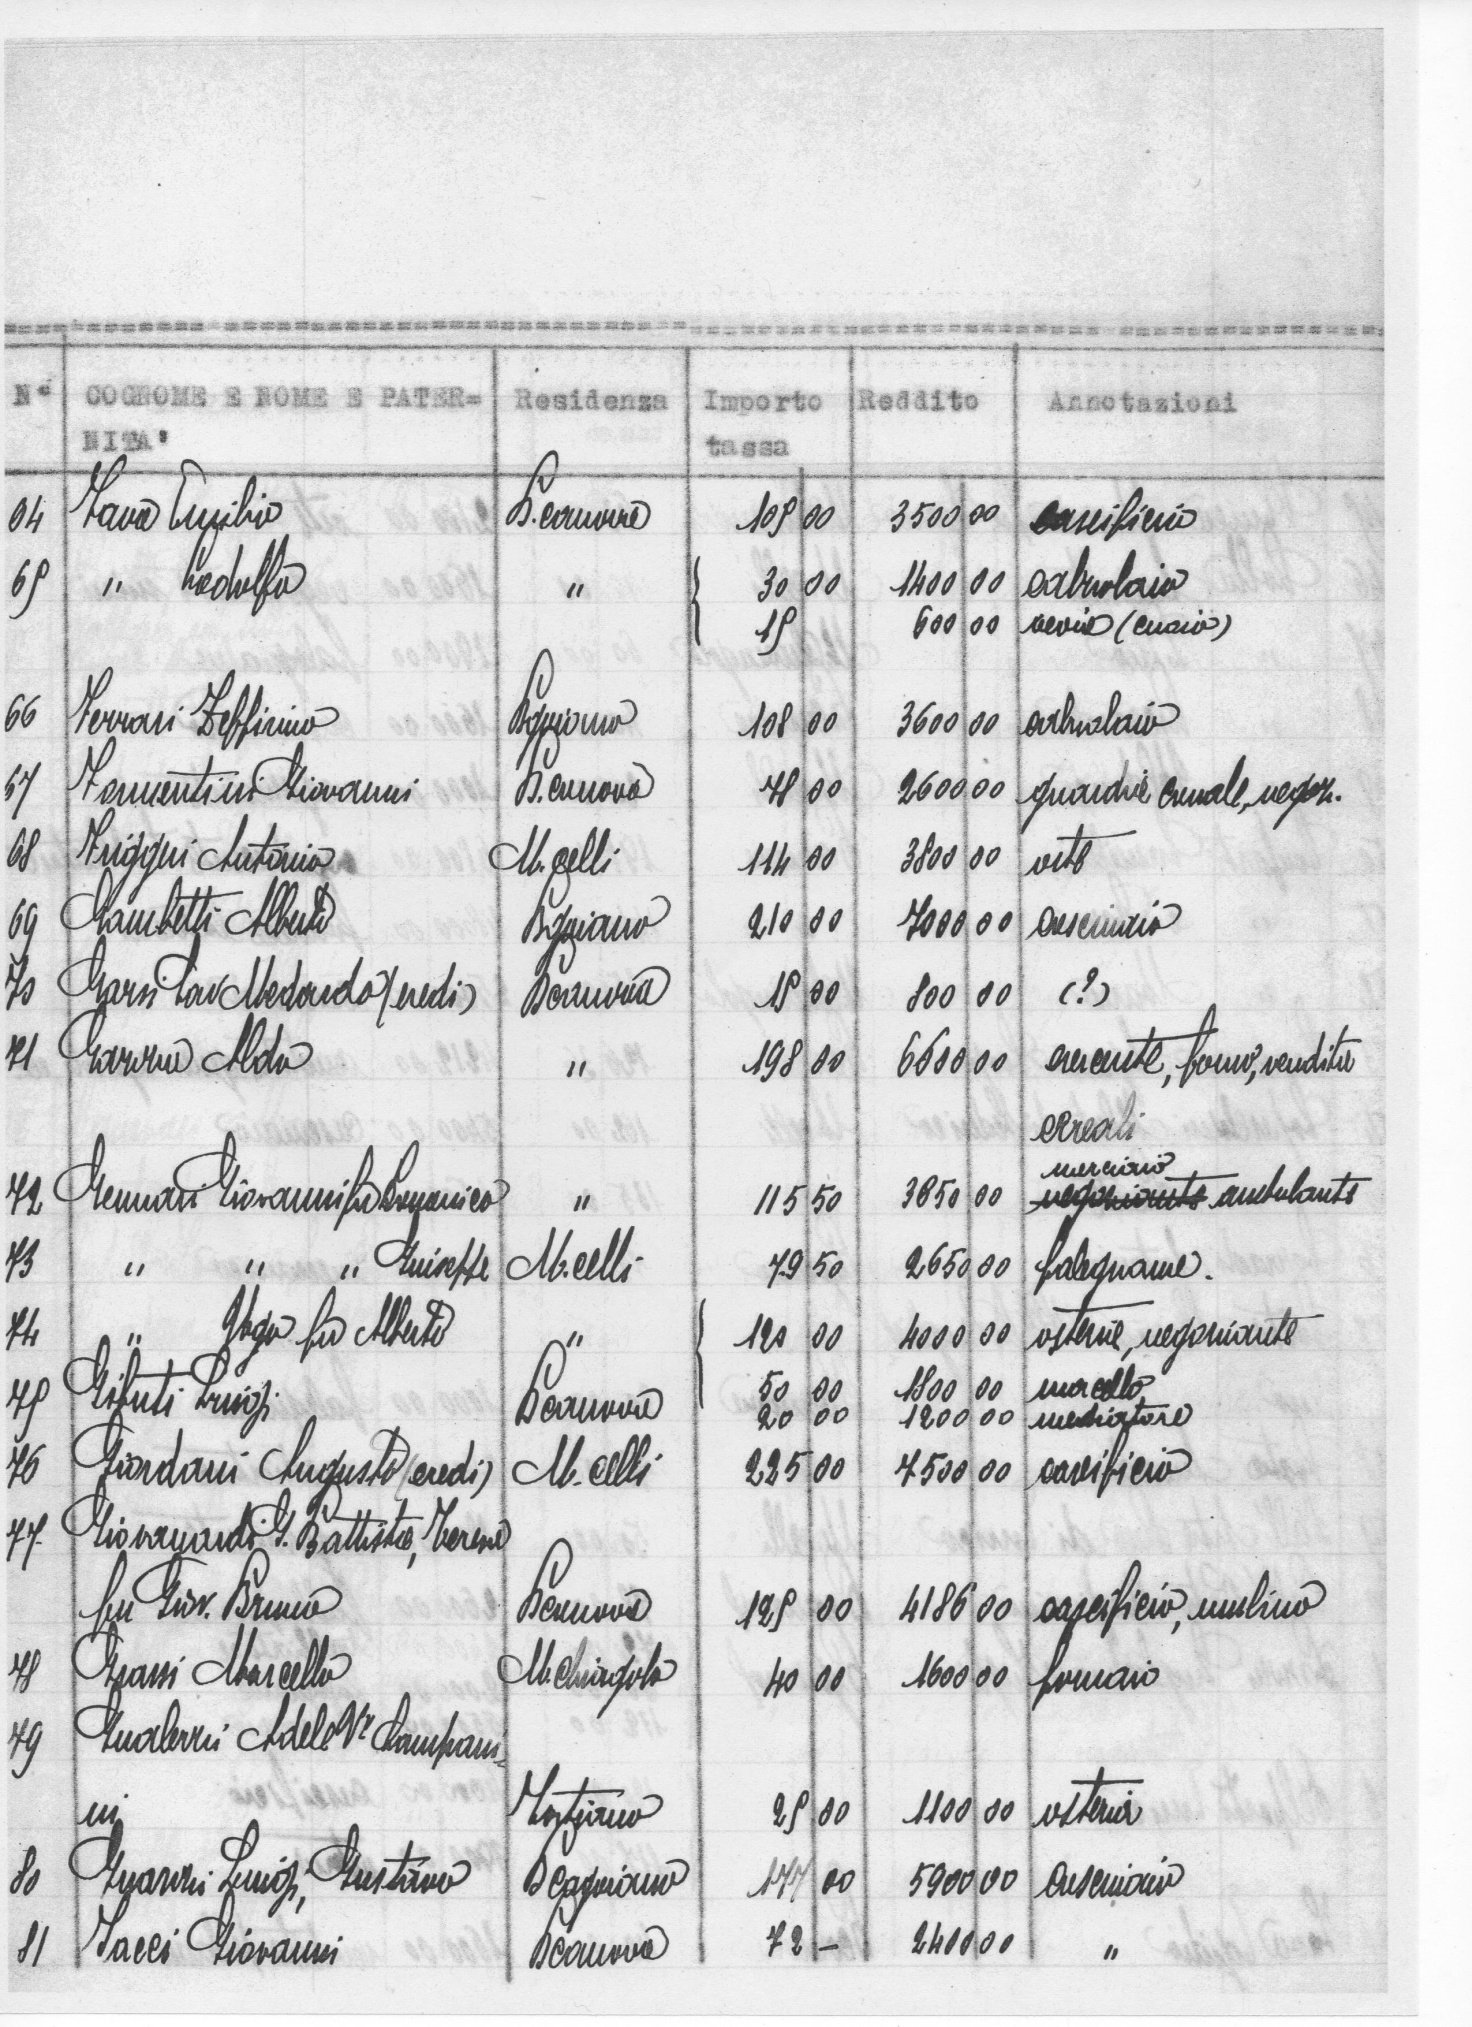 N° COGNOME E NOME E PATER= Residenza Importo Reddito Annotazioni
NITA' tassa
64 Fava Emilio B.canova 105 00 3500 00 caseificio
65 " Rodolfo " 30 00 1400 00 calzolaio
15 600 00
66 Ferrari Zeffirino 108 00 3600 00 calzolaio
67 Formentini Giovanni B.canova 78 00 2600 00 guardia comunale, negoz.
68 Friggeri Antonio M.celli 114 00 3800 00 oste
69 Gambetti Alberto 210 00 7000 00 cascinaio
70 Garsi Cav Medardo (eredi) Bcanova 15 00 800 00 (?)
71 Aldo " 198 00 6600 00 esercente, forno, vendita
cereali
merciaio
72 Gennari Giovanni fu Domenico " 115 50 3850 00 negoziante ambulante
73 " " " Giuseppe M.celli 79 50 2650 00 falegname.
74 " Ugo fu Alberto " 120 00 4000 00 osteria, negoziante
75 Giberti Luigi Bcanova 50 00 1800 00 macello
20 00 1200 00 mediatore
76 Giordani Augusto (eredi) M. celli 225 00 7500 00 caseificio
77 G. Battista,
fu Giov. Bruno Bcanova 125 00 4186 00 caseificio, mulino
78 Grassi Marcello M.chiarugolo 40 00 1600 00 fornaio
79 Gualerzi Adele Va Campani=
ni 25 00 1100 00 osteria
80 Luigi, Gustavo 177 00 5900 00 cascinaio
81 Iacci Giovanni Bcanova 72 — 2400 00 "